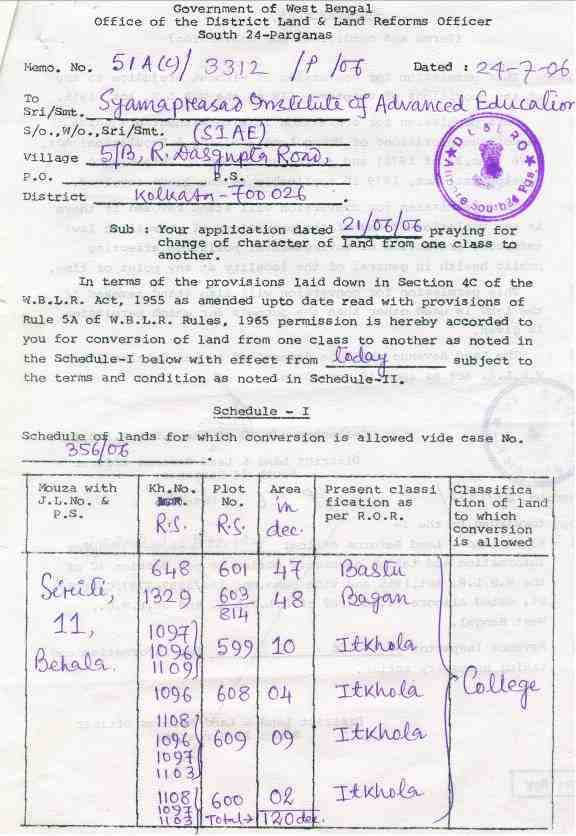 Government of West Bengal
Office of the District Land & Land Reforms Officer
South 24-Parganas
Memo. No. 51A(c)/3312 /P/06 Dated : 24-7-06
To
Sri/Smt. Syamaprasad Institute of Advanced Education
S/o.,W/o.,Sri/Smt. (SIAE)
Village 5/B, R. Dasgupta Road,
P.O. P.S.
District Kolkata-700026.
Sub : Your application dated 21/06/06 praying for
change of character of land from one class to
another.
In terms of the provisions laid down in Section 4C of the
W.B.L.R. Act, 1955 as amended upto date read with provisions of
Rule 5A of W.B.L.R. Rules, 1965 permission is hereby accorded to
you for conversion of land from one class to another as noted in
the Schedule-I below with effect from today subject to
the terms and condition as noted in Schedule-II.
Schedule - I
Schedule of lands for which conversion is allowed vide case No.
356/06.
Mouza with J.L.No. & P.S. Kh.No. R.S. Plot No. R.S. Area in dec. Present classification as per R.O.R. Classification of land to which conversion is allowed
Siriti, 11, Behala.
648 601 47 Bastu
1329 603/814 48 Bagan
1097 1096 1109 599 10 Itkhola
1096 608 04 Itkhola
College
1108 1096 1097 1103 609 09 Itkhola
1108 1097 1103 600 02 Itkhola
Total→ 120 dec.